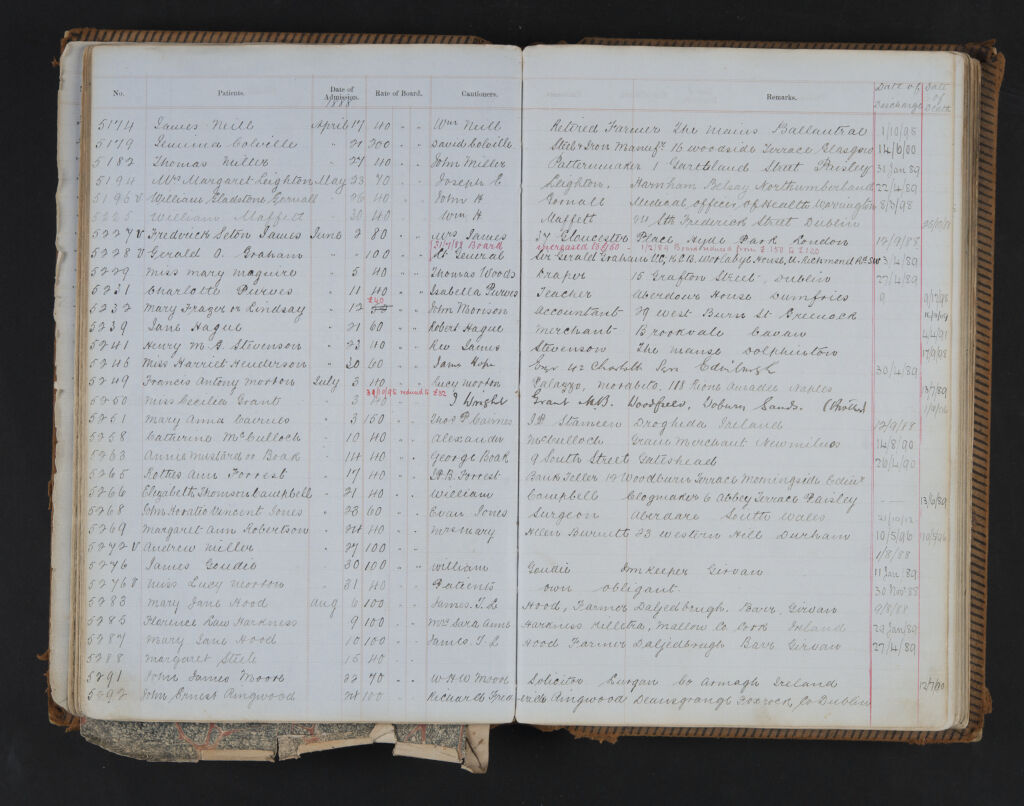 No. Patients. Date of Admission. Rate of Board. Cautioners. Remarks. Date of Discharge Date of Death
1888
5174 James Neill April 17 40 " " Wm Neill Retired Farmer The Mains Ballantrae 1/10/98
5179 Jemima Colville " 21 200 " " David Colville Steel & Iron Manufr 16 Woodside Terrace Glasgow 14/6/00
5182 Thomas Miller " 27 40 " " John Miller Patternmaker 1 Gartsland Street Paisley 31 Jan 89
5194 Mrs Margaret Leighton May 23 70 " " Joseph C Leighton. Harnham Belsay Northumberland 22/4/89
5195 v William Gladstone Gornall " 26 40 " " John H Gornall Medical Officer of Health Warrington 8/3/98
5225 William Maffett " 30 40 " " Wm H Maffett Frederick Street Dublin
5227 v Fredrick Seton James June 2 80 " " Mrs James 37 Gloucester Place Hyde Park London 12/9/88
31/7/83 Board increased to £150 - 1/2/89 Board reduced from £150 to £120
5228 v Gerald O. Graham " " 100 " " Lt General Sir Gerald Graham VC, K.C.B. House, Richmond Rd SW 3/4/89
5229 Miss Mary Maguire " 5 40 " " Thomas Woods Draper 15 Grafton Street, Dublin 27/4/89
5231 Charlotte Purves " 11 40 " " Isabella Purves Teacher Aberdour House Dumfries
£40
5232 Mary Frazer or Lindsay " 12 " " John Morison Accountant 29 West Burn St Greenock
5239 Jane Hague " 21 60 " " Robert Hague Merchant Brookvale Cavan 4/4/91
5241 Henry M. G Stevenson " 23 110 " " Rev James Stevenson The Manse Dolphinton 17/9/98
5246 Miss Harriet Henderson " 30 60 " " James Hope Edinburgh 30/4/89
5249 Francis Antony Morton July 3 " " Lucy Morton Palazzo, Morabito, 118 Rione Amadei Naples 13/7/89
30/10/95 reduced to £52
5250 Miss Cecilia Grant " 3 " " J Wright Grant M.B. Woodfield, Woburn Sands. (Brother)
5251 Mary Anna Cairnes " 3 150 " " Thos P. Cairnes Drogheda Ireland 12/9/88
5258 Catherine McCulloch " 10 40 " " Alexander McCulloch Grain Merchant Newmilns 14/8/90
5263 Annie Mustard or Boak " 14 40 " " George Boak 9 South Street Gateshead 26/4/90
5265 Ann Forrest " 17 40 " " B. Forrest Bank Teller 12 Woodburn Terrace Morningside Edinr
5266 Elizabeth Thomson Campbell " 21 40 " " William Campbell Clogmaker 6 Abbey Terrace Paisley 13/6/89
5268 John Horatio Vincent Jones " 23 60 " " Evan Jones Surgeon Aberdare South Wales 21/10/12
5269 Margaret Ann Robertson " 24 40 " " Mrs Mary Helen Burnett 23 Western Hill Durham 10/5/96
5272 v Andrew Miller " 27 100 " " 1/8/88
5276 James Goudie " 30 100 " " William Goudie Innkeeper Girvan 11 Jan 89
5276 v Miss Lucy Morton " 31 40 " " Patients own obligant. 30 Nov 88
5283 Mary Jane Hood Aug 6 100 " " James. T. L Hood, Farmer Daljedbrough, Barr, Girvan 9/8/88
5285 Florence Law Harkness " 9 100 " " Mrs Sara Anne Harkness Killetra, Mallow Co Cork Ireland 29 Jan 89
5287 Mary Jane Hood " 10 100 " " James. T. L Hood Farmer Daljedbrough Barr Girvan 27/4/89
5288 Margaret Steele " 15 40 " "
5291 John James Moore " 22 70 " " W. H. W Moore Solicitor Lurgan Co Armagh Ireland 12/7/90
5292 John Ernest Ringwood " 24 100 " " Richard Frederick Ringwood Deansgrange Foxrock, Co Dublin